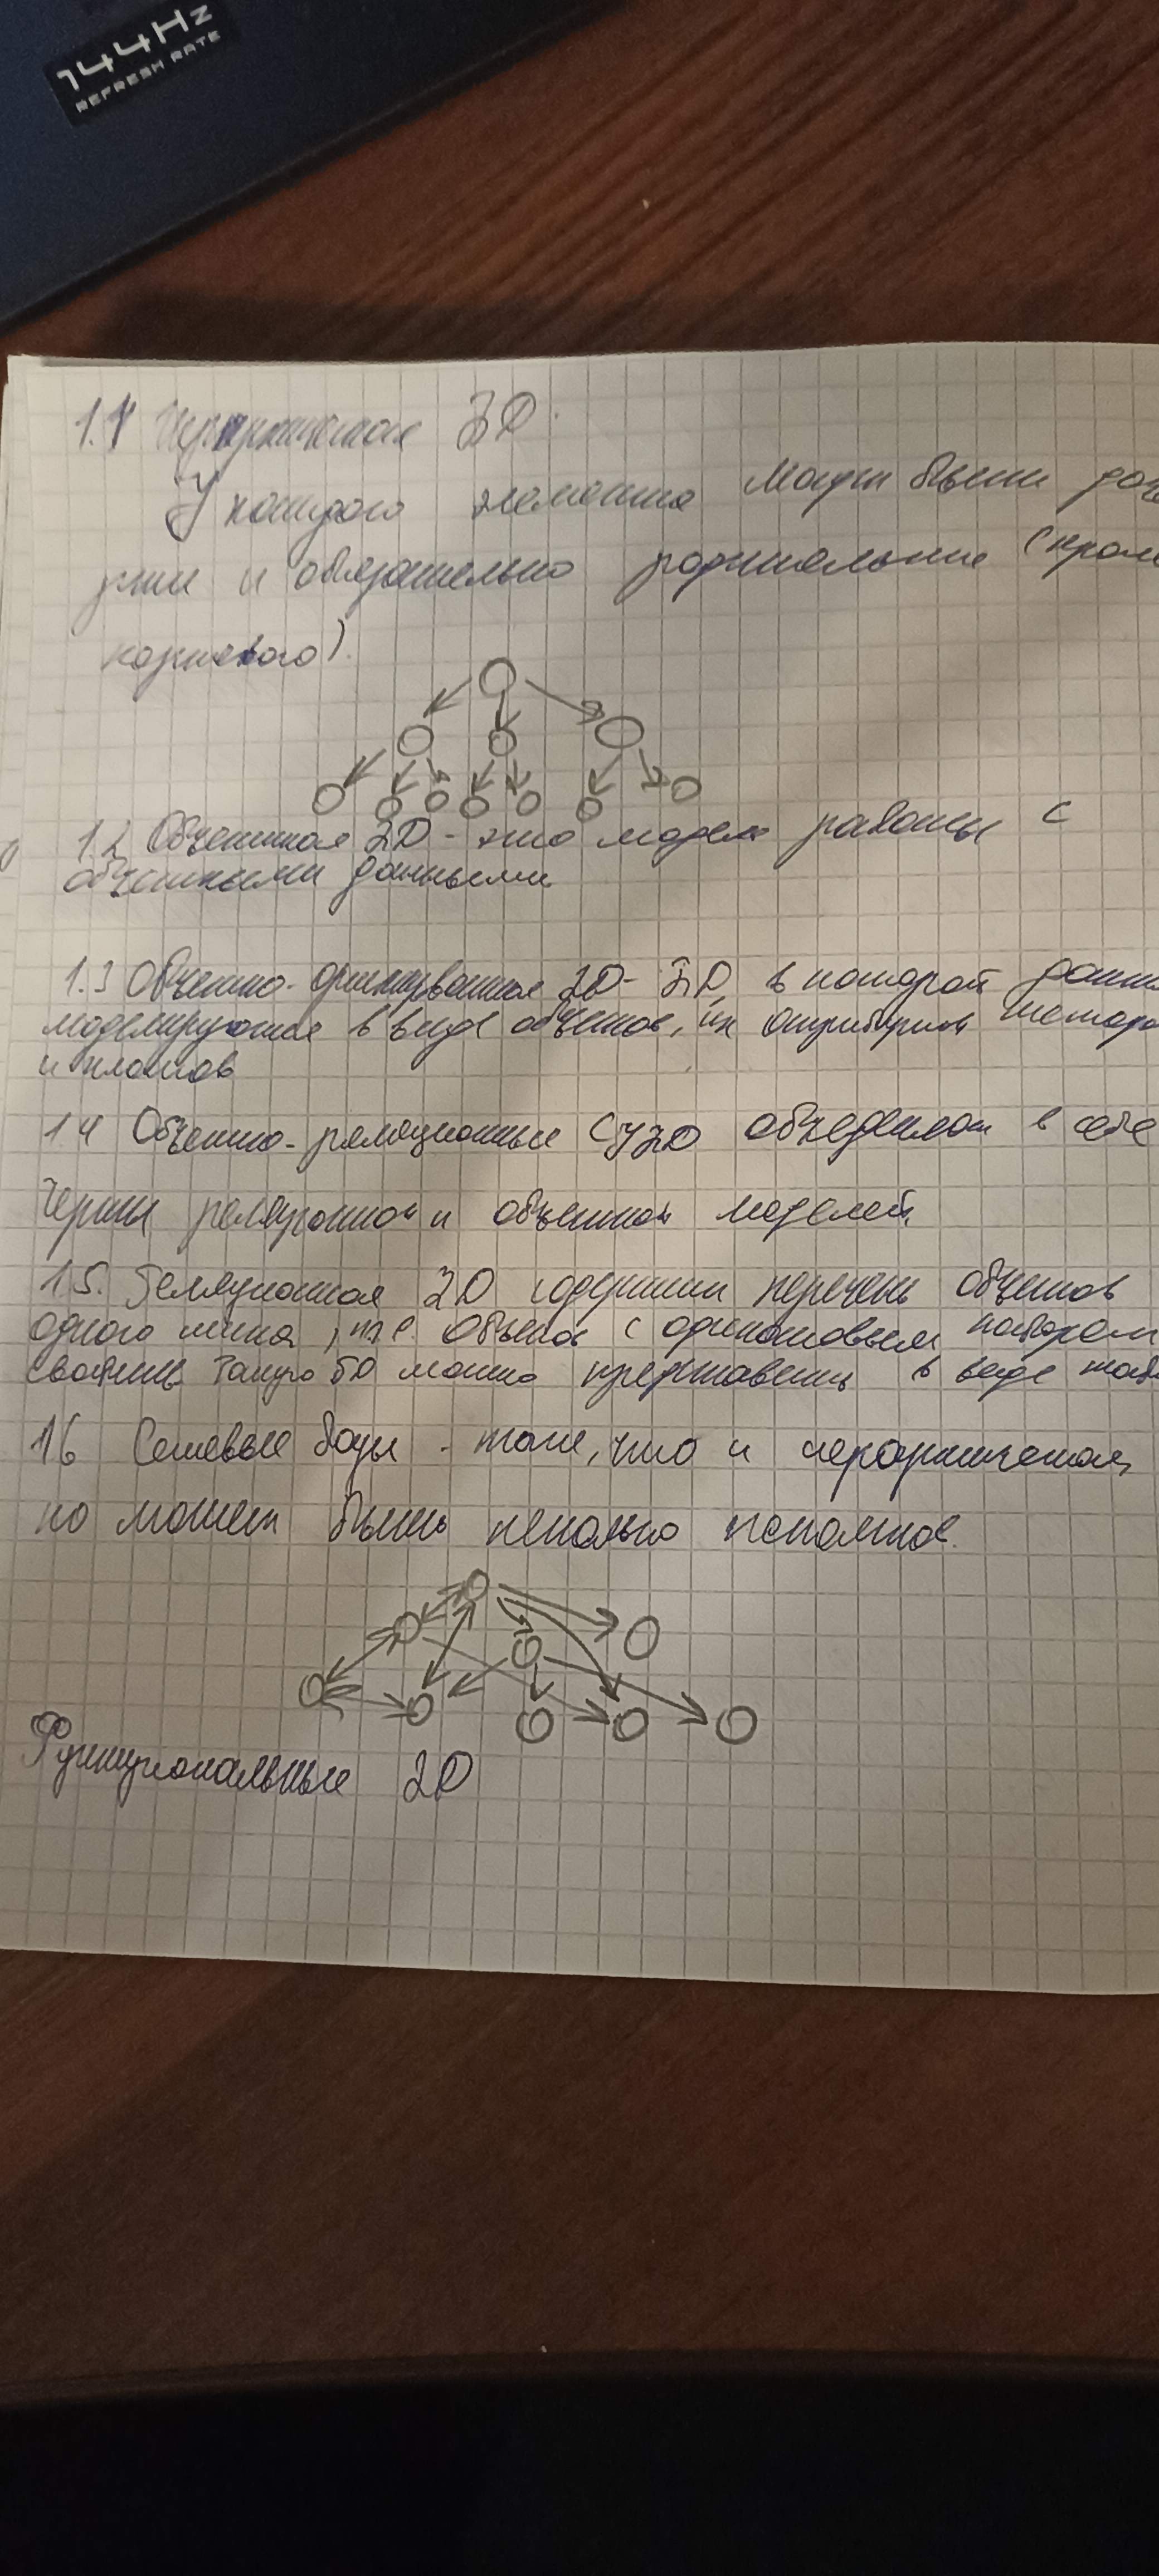 144Hz
REFRESH RATE
1.1 Иерархическая БД.
У каждого элемента могут быть доче
рние и обязательно родительские (кроме
корневого).
1.2 Объектная БД - это модель работы с
объектными данными
1.3 Объектно-ориентированная БД - БД, в которой данные
моделируются в виде объектов, их атрибутов, методов
и классов
1.4 Объектно-реляционные СУБД объединяют в себе
черты реляционной и объектной моделей.
1.5. Реляционная БД содержит перечень объектов
одного типа, т.е. объекты с одинаковым набором
свойств. Такую БД можно представить в виде табл
1.6 Сетевые базы - то же, что и иерархическая,
но может быть несколько
Функциональные БД